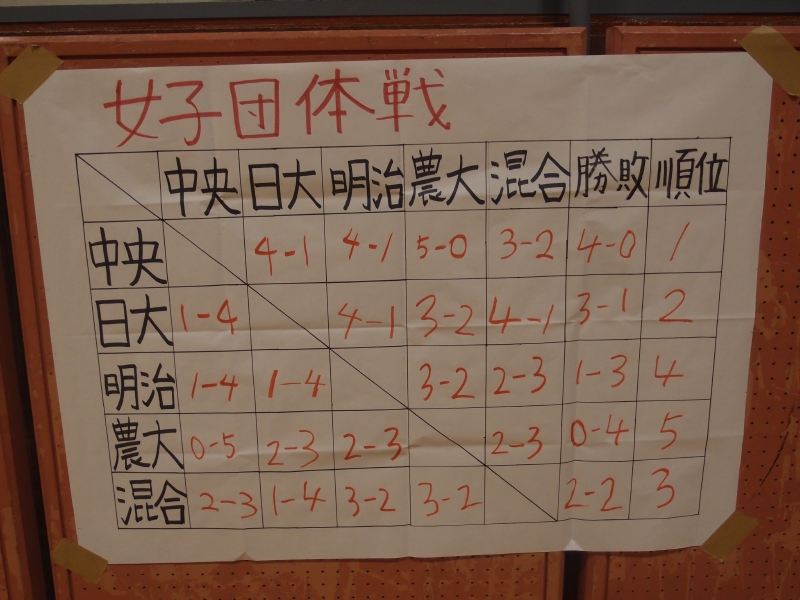 女子団体戦
中央 日大 明治 農大 混合 勝敗 順位
中央 4-1 4-1 5-0 3-2 4-0 1
日大 1-4 4-1 3-2 4-1 3-1 2
明治 1-4 1-4 3-2 2-3 1-3 4
農大 0-5 2-3 2-3 2-3 0-4 5
混合 2-3 1-4 3-2 3-2 2-2 3